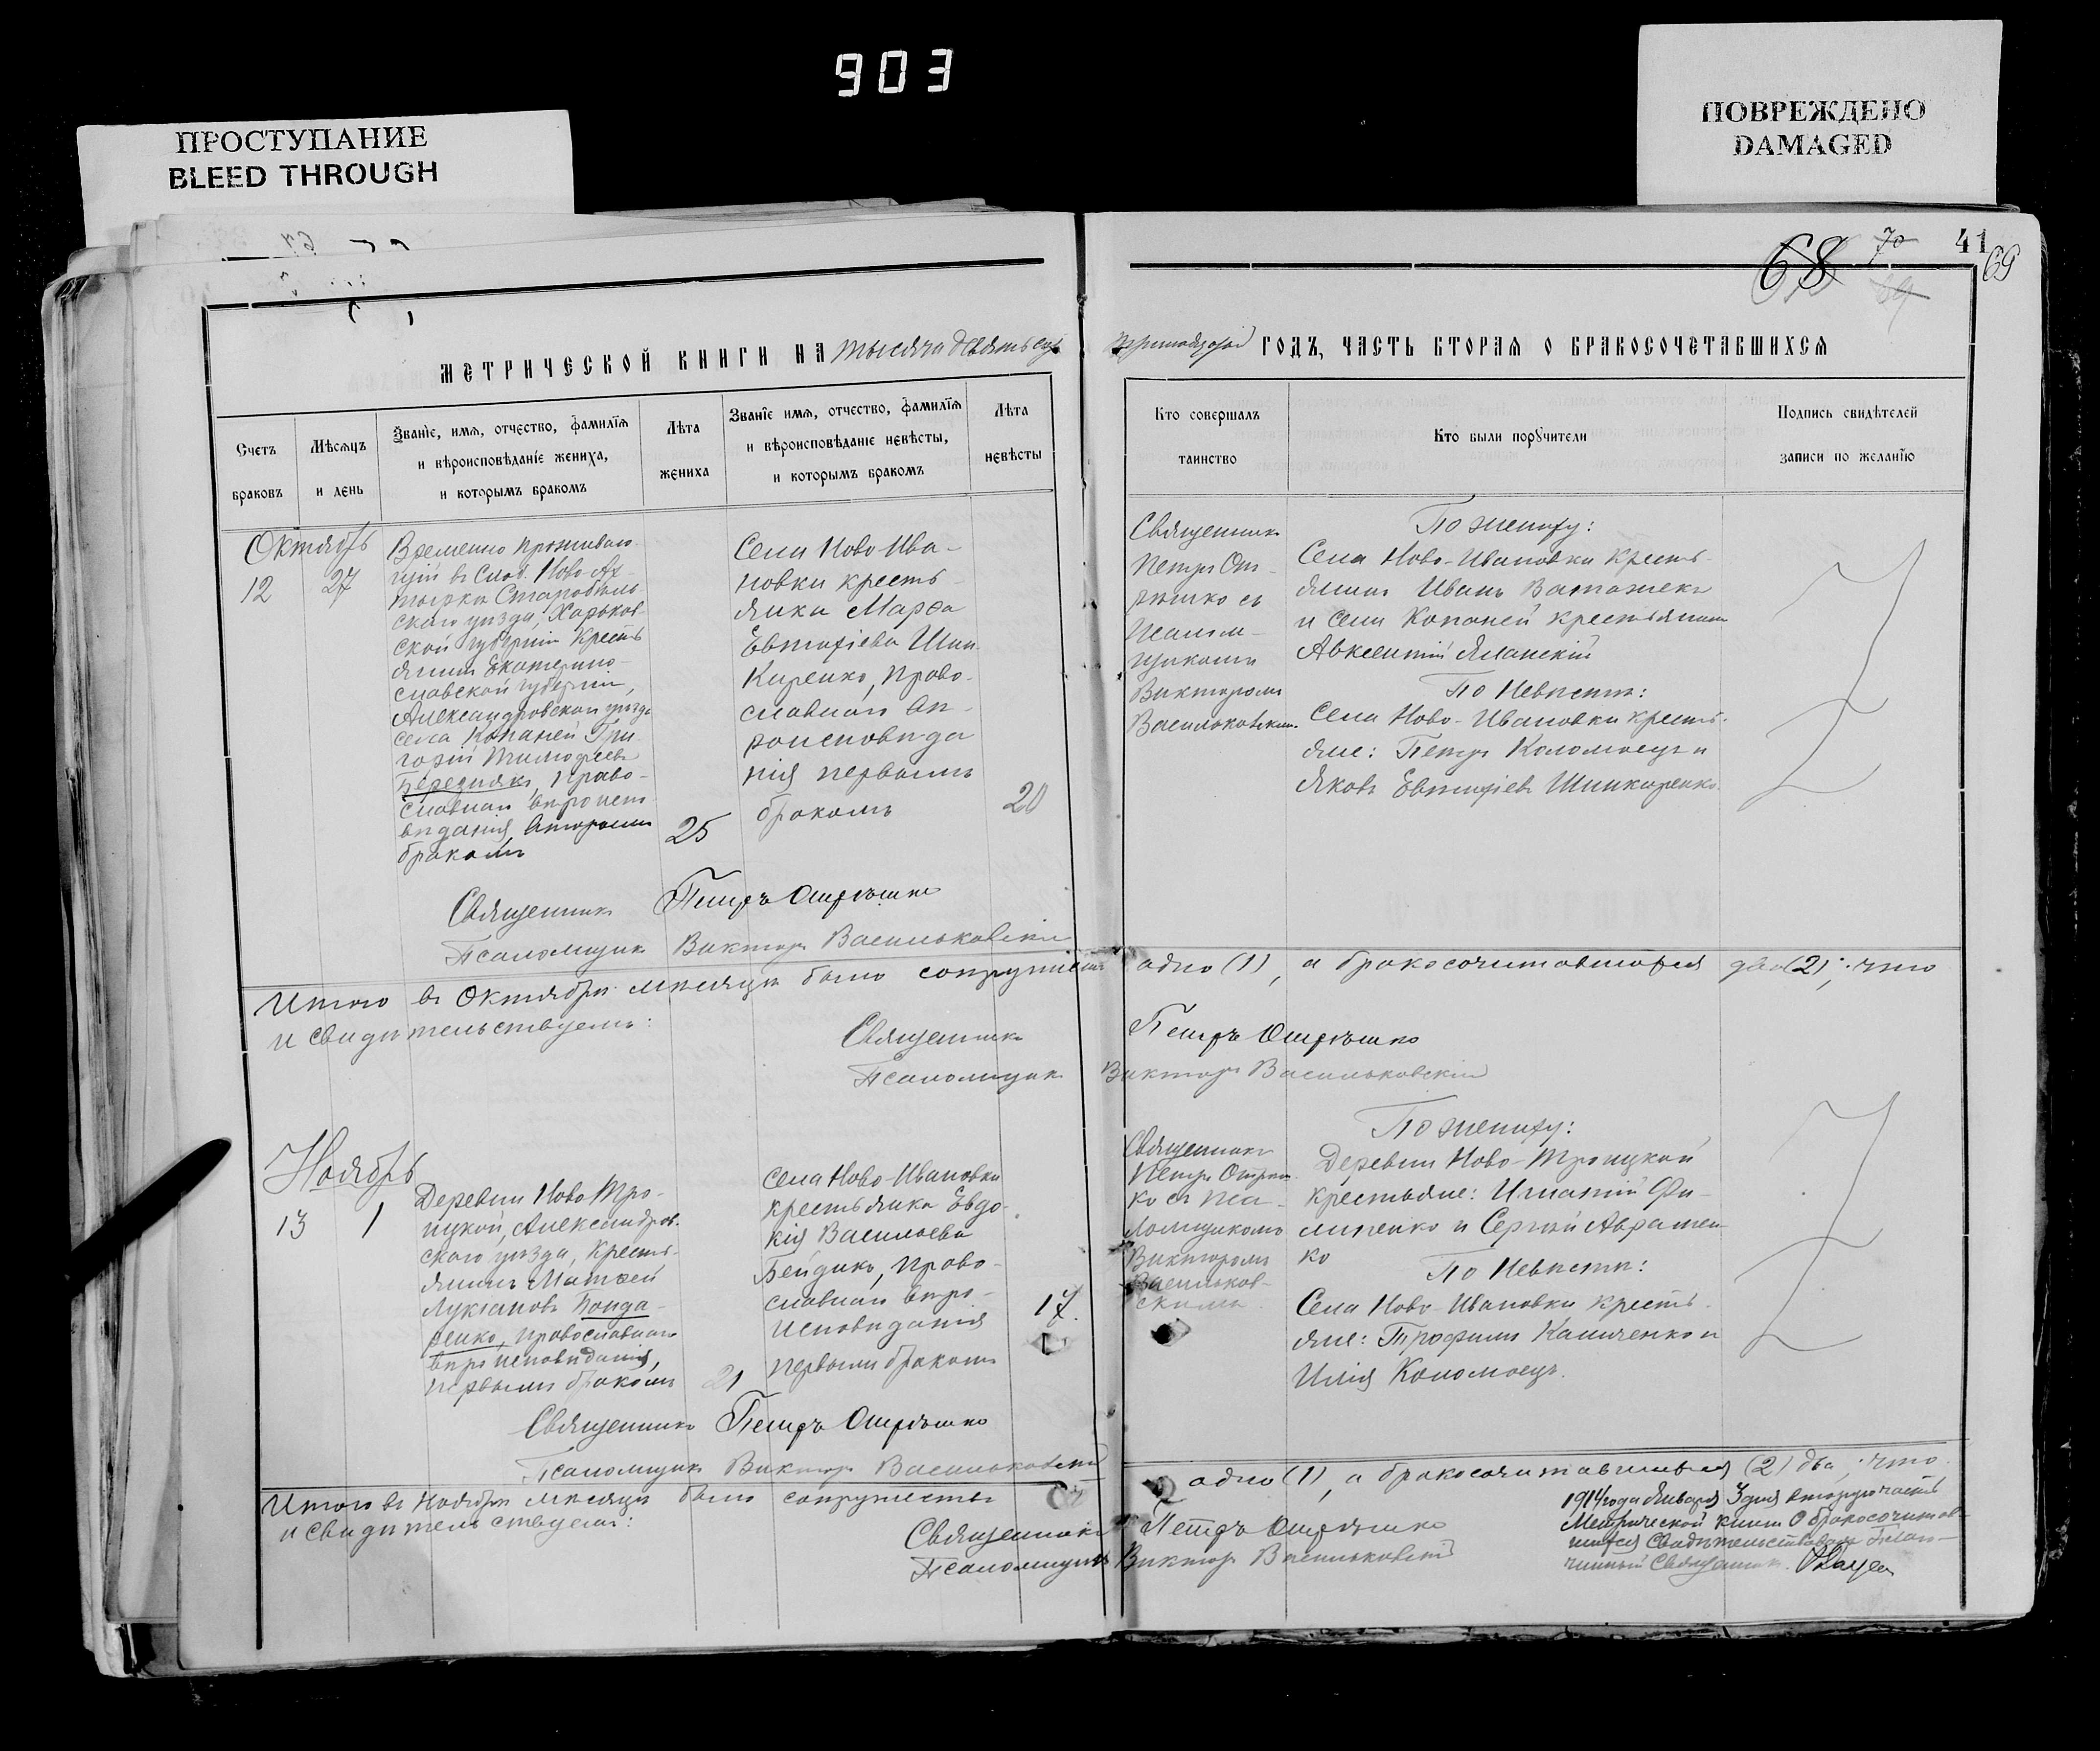 903
ПРОСТУПАНИЕ
BLEED THROUGH
ПОВРЕЖДЕНО
DAMAGED
68
70
69
41
69
МЕТРИЧЕСКОЙ КНИГИ НА тысяча девятьсотъ
тринадцатой ГОДЪ, ЧАСТЬ ВТОРАЯ О БРАКОСОЧЕТАВШИХСЯ
Счетъ
браковъ
Мѣсяцъ
и день
Званіе, имя, отчество, фамилія
и вѣроисповѣданіе жениха,
и которымъ бракомъ
Лѣта
жениха
Званіе имя, отчество, фамилія
и вѣроисповѣданіе невѣсты,
и которымъ бракомъ
Лѣта
невѣсты
Кто совершалъ
таинство
Кто были поручители
Подпись свидѣтелей
записи по желанію
Октябрь
12
27
Временно проживаю-
щій въ Слоб. Ново-Ах-
тырка Старобѣль-
скаго уѣзда, Харьков-
ской губерніи Кресть
янинъ Екатерино-
славской губерніи,
Александровскаго уѣзда
села Копаней Гри-
горій Тимофеевъ
Березнякъ, право-
славнаго вѣроиспо
вѣданія, вторымъ
бракомъ
25
Села Ново-Ива-
новки кресть-
янка Марѳа
Евтихіева Шин
каренко, право-
славнаго вѣ-
роисповѣда
нія первымъ
бракомъ
20
Священникъ
Петръ От-
рѣшко съ
псалом-
щикомъ
Викторомъ
Васильковским.
По жениху:
Села Ново-Ивановки кресть-
янинъ Иванъ Ватажекъ
и села Копаней крестьянинъ
Авксентій Яланскій
По невѣстѣ:
Села Ново-Ивановки кресть-
яне: Петръ Коломоецъ и
Яковъ Евтихіевъ Шинкаренко.
Священникъ Петръ Отрѣшко
Псаломщикъ Викторъ Васильковскій
Итого въ Октябрѣ мѣсяцѣ было супружествъ одно (1), а бракосочетавшихся два (2); что
и свидѣтельствуемъ:
Священникъ Петръ Отрѣшко
Псаломщикъ Викторъ Васильковскій
Ноябрь
13
1
Деревни Ново Тро-
ицкой, Александров-
скаго уѣзда, Кресть-
янинъ Матѳей
Лукіановъ Бонда-
ренко, православнаго
вѣроисповѣданія,
первымъ бракомъ
21
села Ново-Ивановки
крестьянка Евдо-
кія Васильева
Бейдикъ, право-
славнаго вѣро-
исповѣданія
первымъ бракомъ
17.
Священникъ
Петръ Отрѣш
ко съ пса-
ломщикомъ
Викторомъ
Васильков-
скимъ.
По жениху:
Деревни Ново-Троицкой
крестьяне: Игнатій Фи-
липенко и Сергѣй Авраmен-
ко
По невѣстѣ:
Села Ново-Ивановки кресть-
яне: Трофимъ Каличенко и
Илія Коломоецъ.
Священникъ Петръ Отрѣшко
Псаломщикъ Викторъ Васильковскій
Итого въ Ноябрѣ мѣсяцѣ было супружествъ одно (1), а бракосочетавшихся (2) два, что
и свидѣтельствуемъ:
Священникъ Петръ Отрѣшко
Псаломщикъ Викторъ Васильковскій
1914 года Января 3 дня вторую часть
Метрической книги О бракосочетав-
шихся Свидѣтельствовалъ Благо-
чинный Священникъ